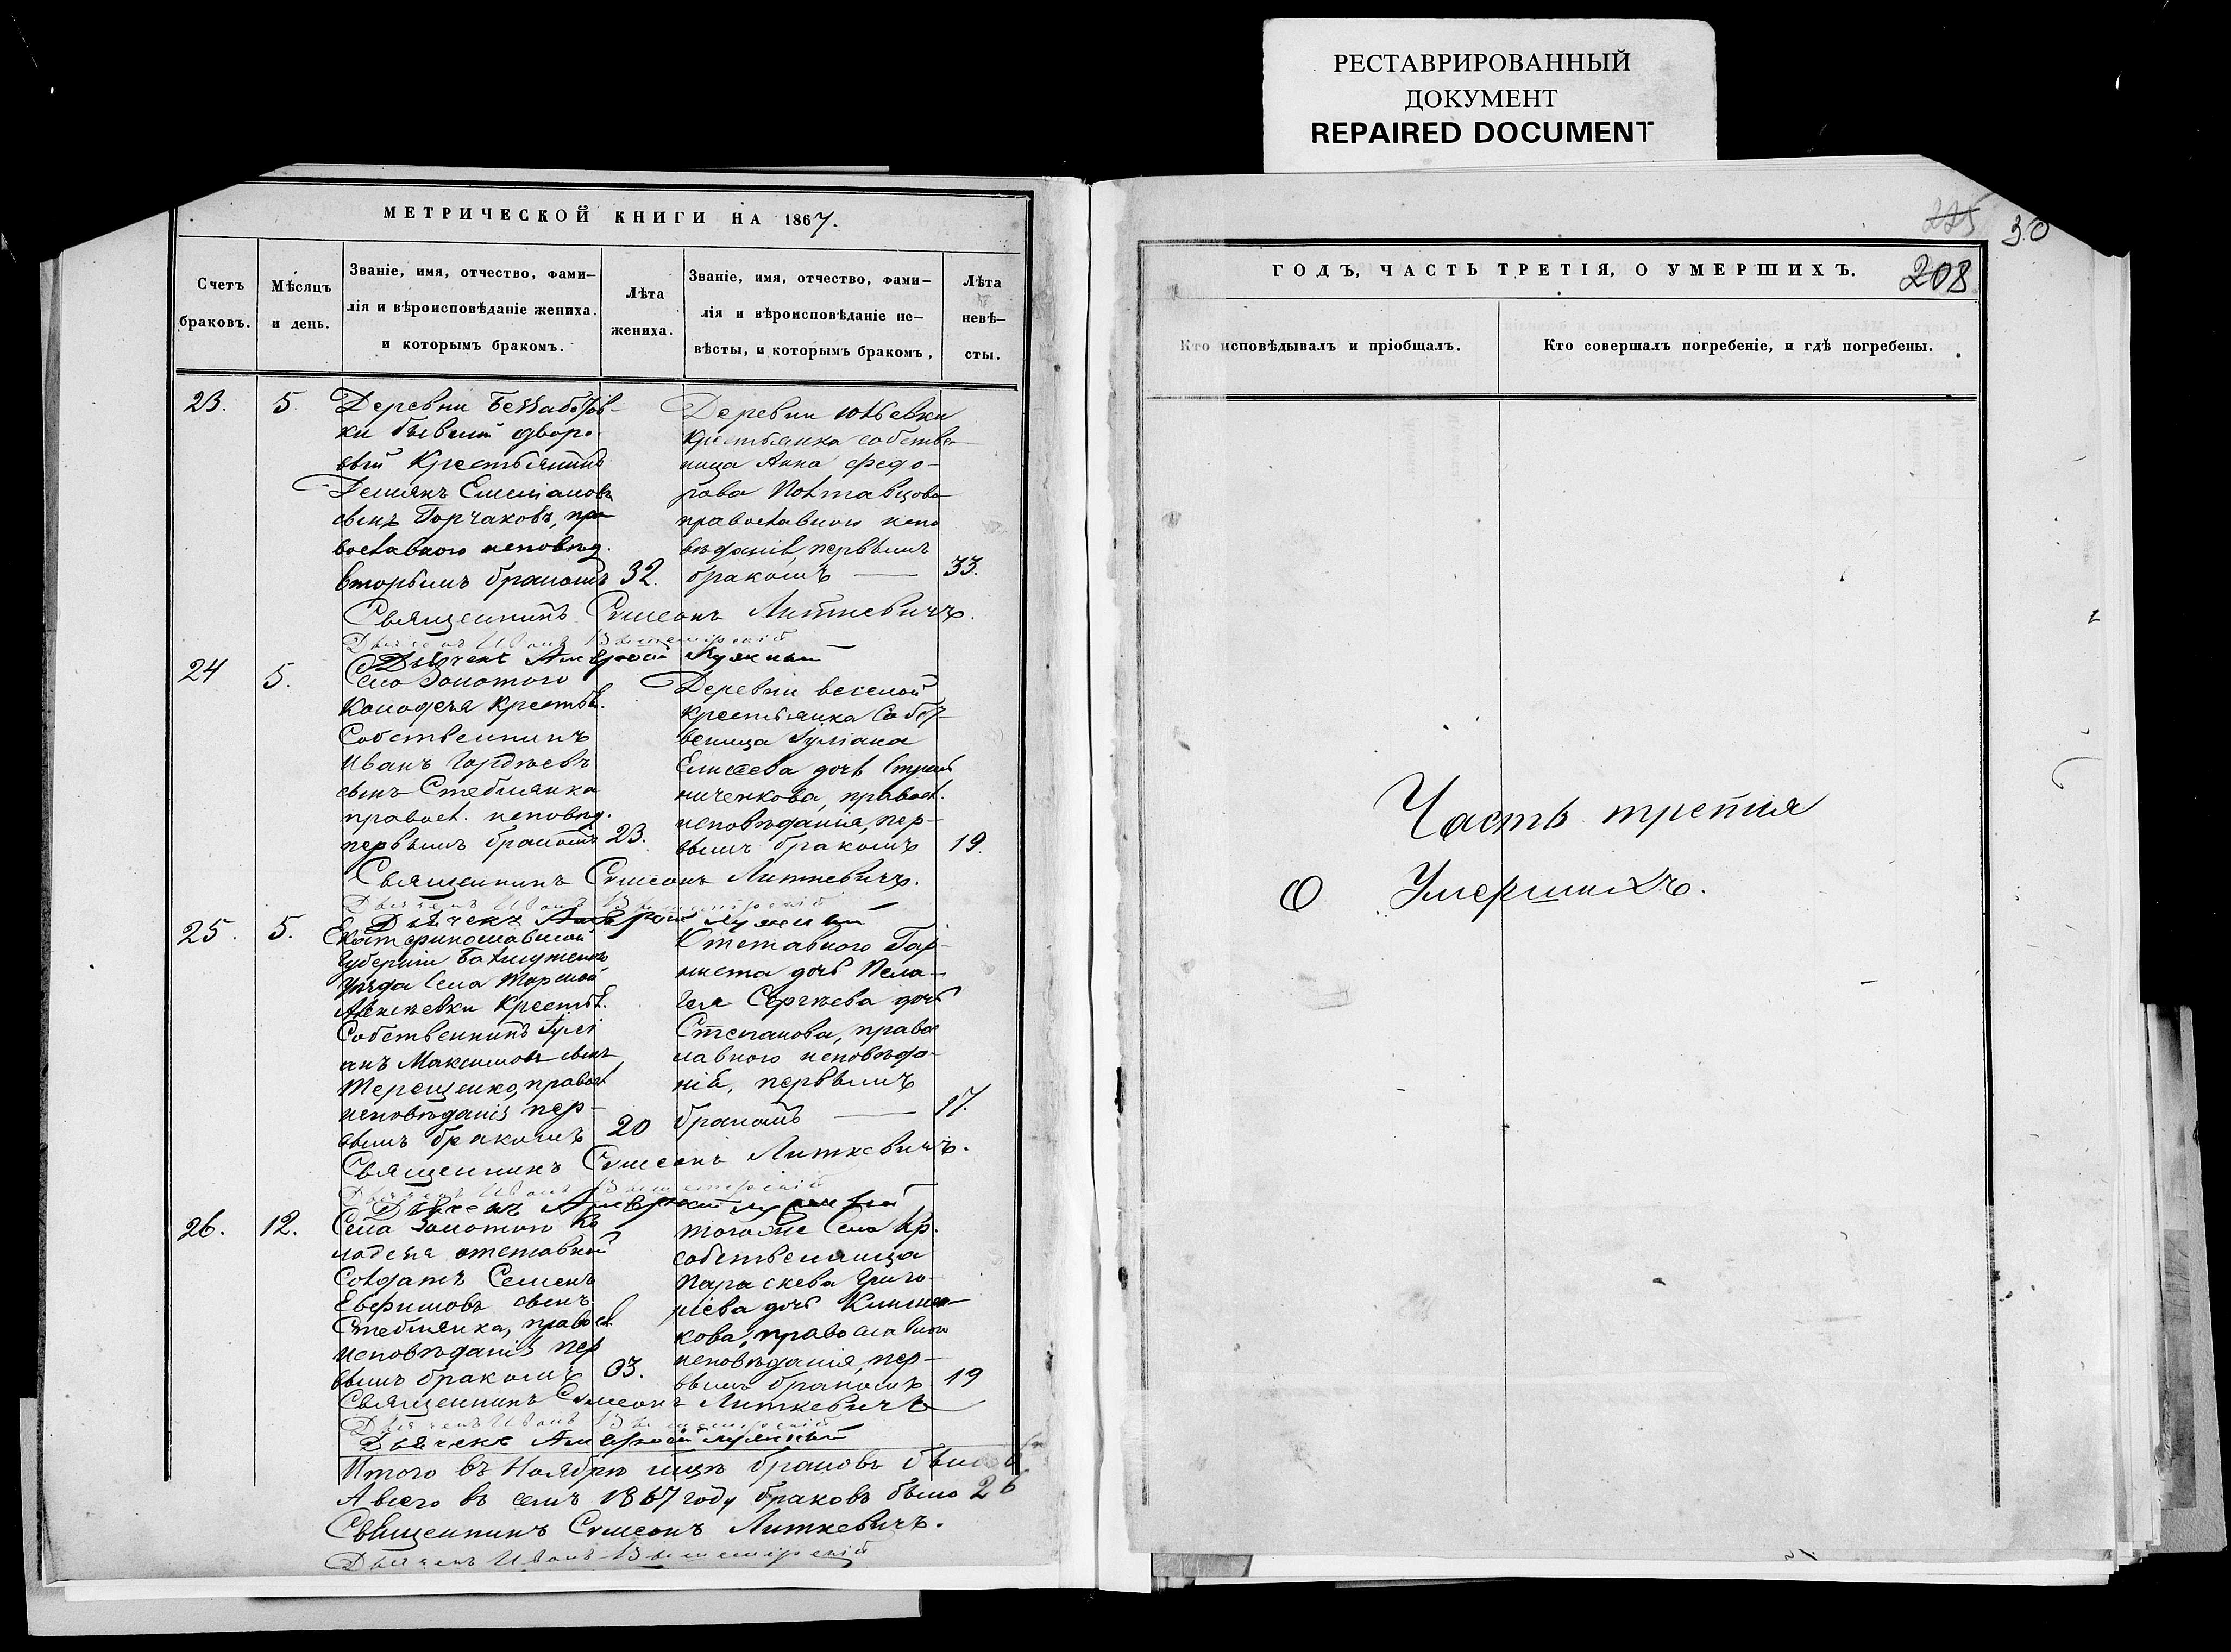 РЕСТАВРИРОВАННЫЙ
ДОКУМЕНТ
REPAIRED DOCUMENT
МЕТРИЧЕСКОЙ КНИГИ НА 1867.
Счетъ браковъ.
Мѣсяцъ и день.
Званіе, имя, отчество, фами-
лія и вѣроисповѣданіе жениха,
и которымъ бракомъ.
Лѣта жениха.
Званіе, имя, отчество, фами-
лія и вѣроисповѣданіе не-
вѣсты, и которымъ бракомъ,
Лѣта невѣ-
сты.
23. 5.
Деревни
ки бывшій дворо
вый Крестьянинъ
Демиянъ Емеліановъ
сынъ Горчаковъ, пра
вославного исповѣд.
вторымъ бракомъ 32.
Деревни
крестьянка собствен
ница Анна Федо-
рова Полтавцова
православного испо
вѣданія, первымъ
бракомъ — 33.
Священникъ Симеонъ Литкевичъ.
Дьячекъ Иванъ
Дьячекъ
24 5.
Село Золотого
Колодезя Крестья.
Собственникъ
Иванъ Гордѣевъ
сынъ Стеблянка
правосл. исповѣд.
первымъ бракомъ 23.
Деревни веселой
крестьянка Собст
веница Іуліана
Елисеева дочь
ниченкова, правосл.
исповѣданія, пер-
вымъ бракомъ 19.
Священникъ Симеонъ Литкевичъ.
Дьячекъ Иванъ
Дьячекъ
25. 5.
Екатеринославской
Губерніи Бахмутскаго
Уѣзда Села Торской
Алексѣевки Крестья.
Собственникъ Іулі
анъ Максимовъ сынъ
Терещенко, правосл
исповѣданія пер-
вымъ бракомъ 20
Отставного Гор-
ниста дочь Пела-
гея Сергѣева дочь
Степанова, право
славного исповѣда-
нія, первымъ
бракомъ — 17.
Священникъ Симеонъ Литкевичъ.
Дьячекъ Иванъ
Дьячекъ
26. 12.
Села Золотого Ко
лодезя отставный
Солдатъ Семенъ
Евфимовъ сынъ
Стеблянка, правосл.
исповѣданія пер
вымъ бракомъ 33.
Тогоже Села Кр.
собственница
Параскева Григо-
ріева дочь
кова, православного
исповѣданія, пер-
вымъ бракомъ 19
Священникъ Симеонъ Литкевичъ
Дьячекъ Иванъ
Дьячекъ
Итого въ Ноябрѣ мцѣ браковъ было
А всего въ семъ 1867 году браковъ было 26
Священникъ Симеонъ Литкевичъ.
Дьячекъ Иванъ
225 30
208
ГОДЪ, ЧАСТЬ ТРЕТІЯ, О УМЕРШИХЪ.
Кто исповѣдывалъ и пріобщалъ.
Кто совершалъ погребеніе, и гдѣ погребены.
Часть третія
О Умершихъ.